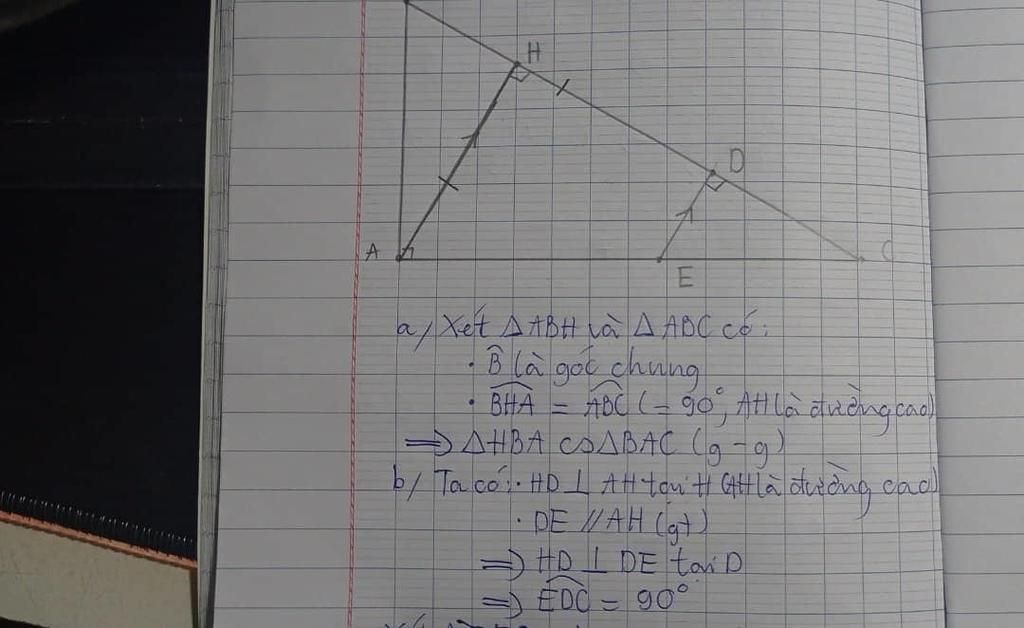 H
D
A
C
E
a/ Xét △ABH và △ABC có:
· B̂ là góc chung
· BHA = ABC (= 90°, AH là đường cao)
⇒ △HBA ∽ △BAC (g-g)
b/ Ta có: · HD ⊥ AH tại H (AH là đường cao)
· DE // AH (gt)
⇒ HD ⊥ DE tại D
⇒ EDC = 90°